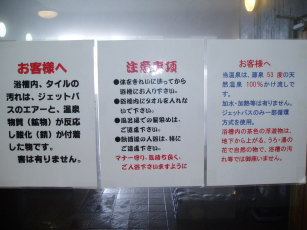 お客様へ
浴槽内、タイルの
汚れは、ジェットバ
スのエアーと、温泉
物質（鉱物）が反応
し酸化（錆）が付着
した物です。
害は有りません。
注意事項
●体をきれいに洗ってから
浴槽にお入り下さい。
●浴槽内にタオルを入れな
いで下さい。
●風呂場での髪染めは、
ご遠慮下さい。
ご遠慮下さい。
マナー守り、気持ち良く、
ご入浴下さいますように
お客様へ
当温泉は、源泉 53 度の天
然温泉 100％かけ流しです。
加水・加熱等は有りません。
ジェットバスのみ一部循環
方式を使用。
浴槽内の茶色の浮遊物は、
地下から上がる、うろ・湯の
花で自然の物で、浴槽の汚
れ等では御座いません。